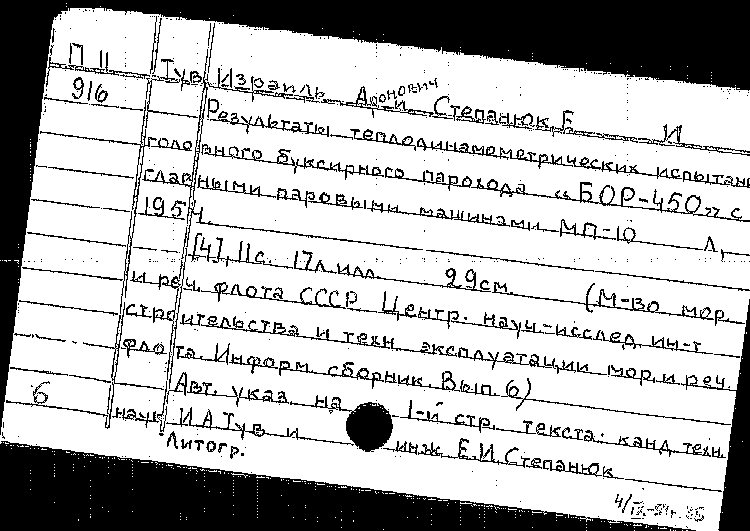 П 11
916
Тув, Израиль Аронович и Степанюк, Е И
Результаты теплодинамометрических испытани
головного буксирного парохода „БОР-450" с
главными паровыми машинами МП-10 Л,
1954.
[4], 11с. 17л.илл. 29см. (М-во мор.
и реч. флота СССР Центр. науч-исслед. ин-т
строительства и техн. эксплуатации мор. и реч.
флота. Информ. сборник. Вып. 6)
Авт. указ. на 1-й стр. текста: канд. техн.
наук И А Тув и инж Е.И. Степанюк
6
Литогр.